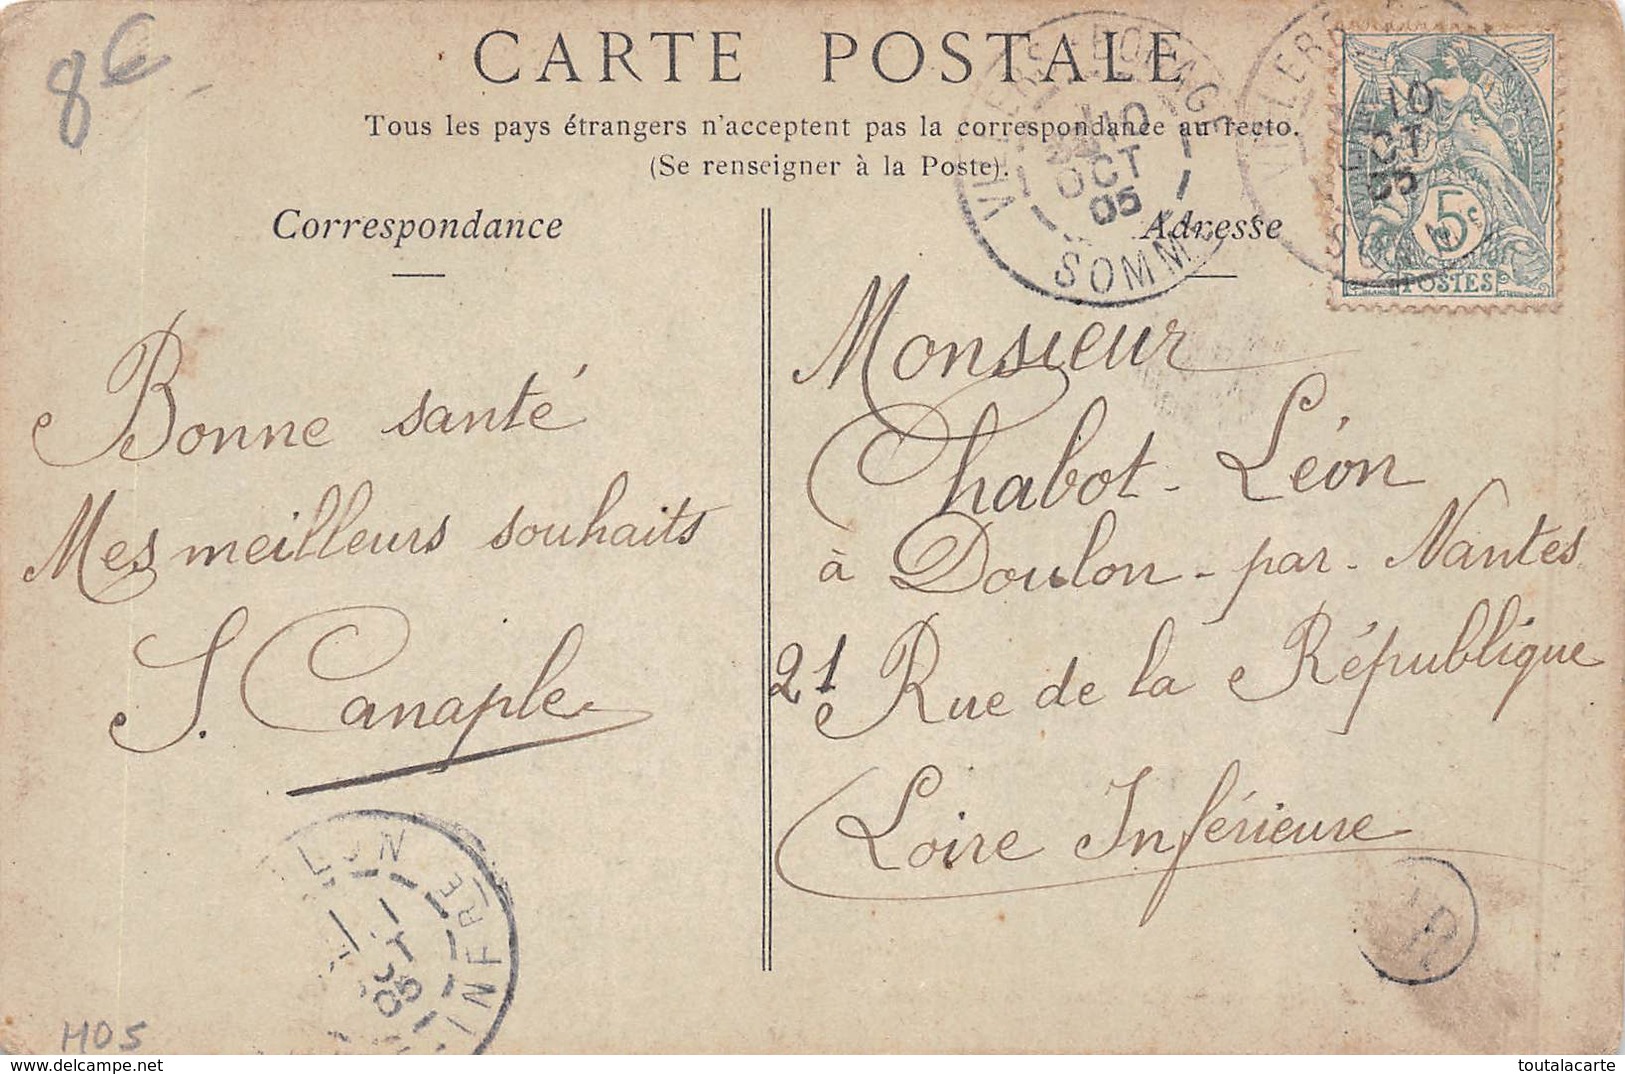 8€
CARTE POSTALE
Tous les pays étrangers n'acceptent pas la correspondance au recto.
(Se renseigner à la Poste).
Correspondance
Adresse
10
OCT
05
SOMME
10
OCT
05
5c
POSTES
Bonne santé
Mes meilleurs souhaits
S. Canaple
Monsieur
Chabot - Léon
à Doulon - par - Nantes
21 Rue de la République
Loire Inférieure
OCT
05
INFRE
HOS
www.delcampe.net
toutalacarte